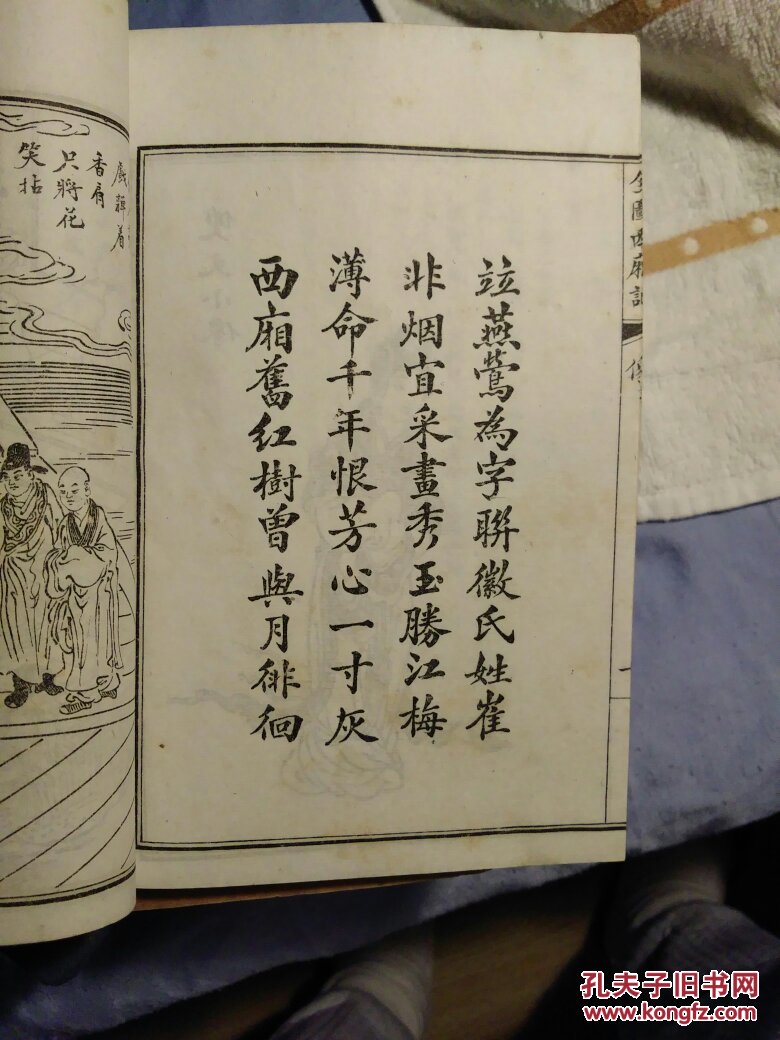 竝燕鶯為字聯徽氏姓崔
非烟宜采畫秀玉勝江梅
薄命千年恨芳心一寸灰
西廂舊紅樹曾與月徘徊
香肩
只將花
笑拈
孔夫子旧书网
www.kongfz.com